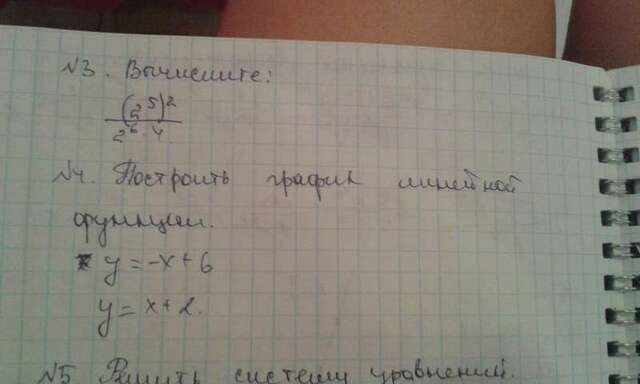 №3. Вычислите:
(2^5)^2
2^6 · 4
№4. Построить график линейной
функции.
y = -x + 6
y = x + 2.
№5 Решить систему уравнений.